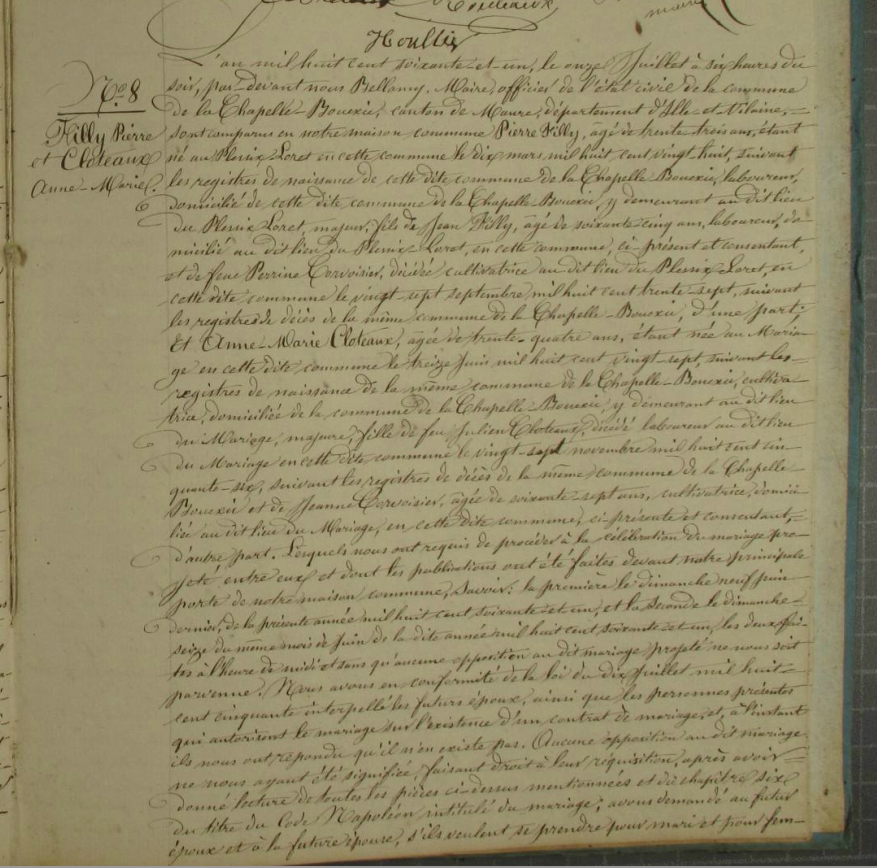 Houllier
N.o 8
Filly Pierre
et Cloteaux
Anne-Marie.
L'an mil huit cent soixante-et-un, le onze Juillet à six heures du
soir, par devant nous Bellamy, Maire, officier de l'état civil de la commune
de la Chapelle-Bouexic, canton de Maure, département d'Ille-et-Vilaine,
sont comparus en notre maison commune Pierre Filly, agé de trente-trois ans, étant
né au Plessix Loret en cette commune le dix mars mil huit cent vingt huit, suivant
les registres de naissance de cette dite commune de la Chapelle Bouexic, laboureur,
domicilié de cette dite commune de la Chapelle Bouexic, y demeurant au dit lieu
du Plessix Loret, majeur, fils de Jean Filly, agé de soixante-cinq ans, laboureur, do-
micilié au dit lieu du Plessix-Loret, en cette commune, ci-présent et consentant,
et de feue Perrine Corvoisier, décédée cultivatrice au dit lieu du Plessix Loret, en
cette dite commune le vingt-sept septembre mil huit cent trente-sept, suivant
les registres de décès de la même commune de la Chapelle-Bouexic, d'une part;
Et Anne-Marie Cloteaux, agée de trente-quatre ans, étant née au Maria-
ge en cette dite commune le treize Juin mil huit cent vingt-sept, suivant les
registres de naissance de la même commune de la Chapelle-Bouexic, cultiva-
trice, domiciliée de la commune de la Chapelle-Bouexic, y demeurant au dit lieu
du Mariage, majeure, fille de feu Julien Cloteaux, décédé laboureur au dit lieu
du Mariage en cette dite commune le vingt-sept novembre mil huit cent cin-
quante-six, suivant les registres de décès de la même commune de la Chapelle
Bouexic et de Jeanne Corvoisier, agée de soixante-sept ans, cultivatrice, domici-
liée au dit lieu du Mariage, en cette dite commune, ci-présente et consentant,
d'autre part. Lesquels nous ont requis de procéder à la célébration du mariage pro-
jeté entre eux et dont les publications ont été faites devant notre principale
porte de notre maison commune, Savoir: la première le dimanche neuf juin
dernier, de la présente année mil huit cent soixante-et-un, et la seconde le dimanche
seize du même mois de Juin de la dite année mil huit cent soixante-et-un, les deux fai-
tes à l'heure de midi et sans qu'aucune opposition au dit mariage projeté ne nous soit
parvenue. Nous avons en conformité de la loi du dix Juillet mil huit
cent cinquante interpellé les futurs époux, ainsi que les personnes présentes
qui autorisent le mariage sur l'existence d'un contrat de mariage, et, à l'instant
ils nous ont répondu qu'il n'en existe pas. Aucune opposition au dit mariage
ne nous ayant été signifiée, faisant droit à leur réquisition, après avoir
donné lecture de toutes les pièces ci-dessus mentionnées et du chapitre six
du titre du Code Napoléon intitulé du mariage, avons demandé au futur
époux et à la future épouse, s'ils veulent se prendre pour mari et pour fem-